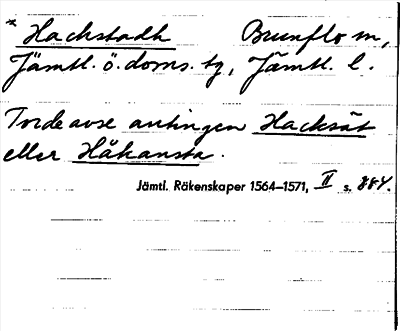 * Hackstadh Brunflo sn,
Jämtl. ö. doms. tg, Jämtl. l.
Torde avse antingen Hacksät
eller Håkansta.
Jämtl. Räkenskaper 1564–1571, II s. 884.